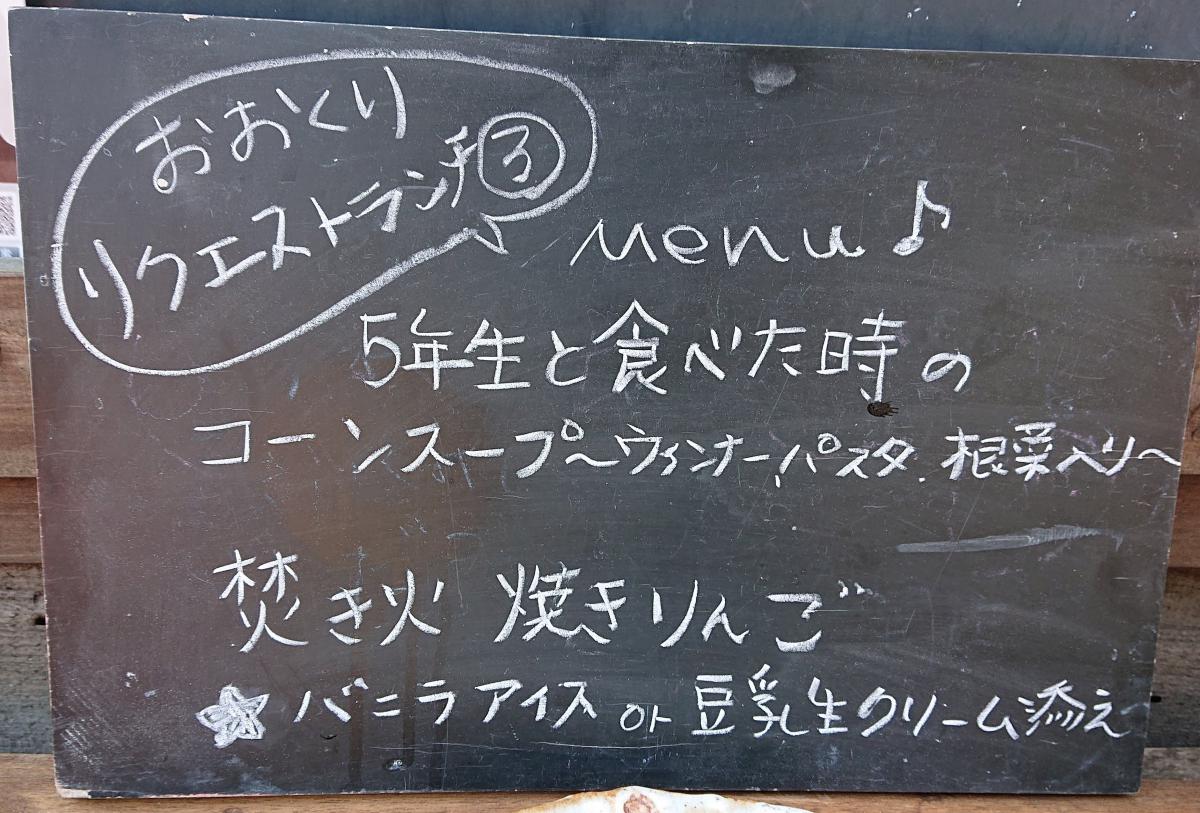 おおくり
リクエストランチ③
Menu♪
5年生と食べた時の
コーンスープ〜ウィンナー、パスタ、根菜入り〜
焚き火 焼きりんご
★バニラアイス or 豆乳生クリーム添え